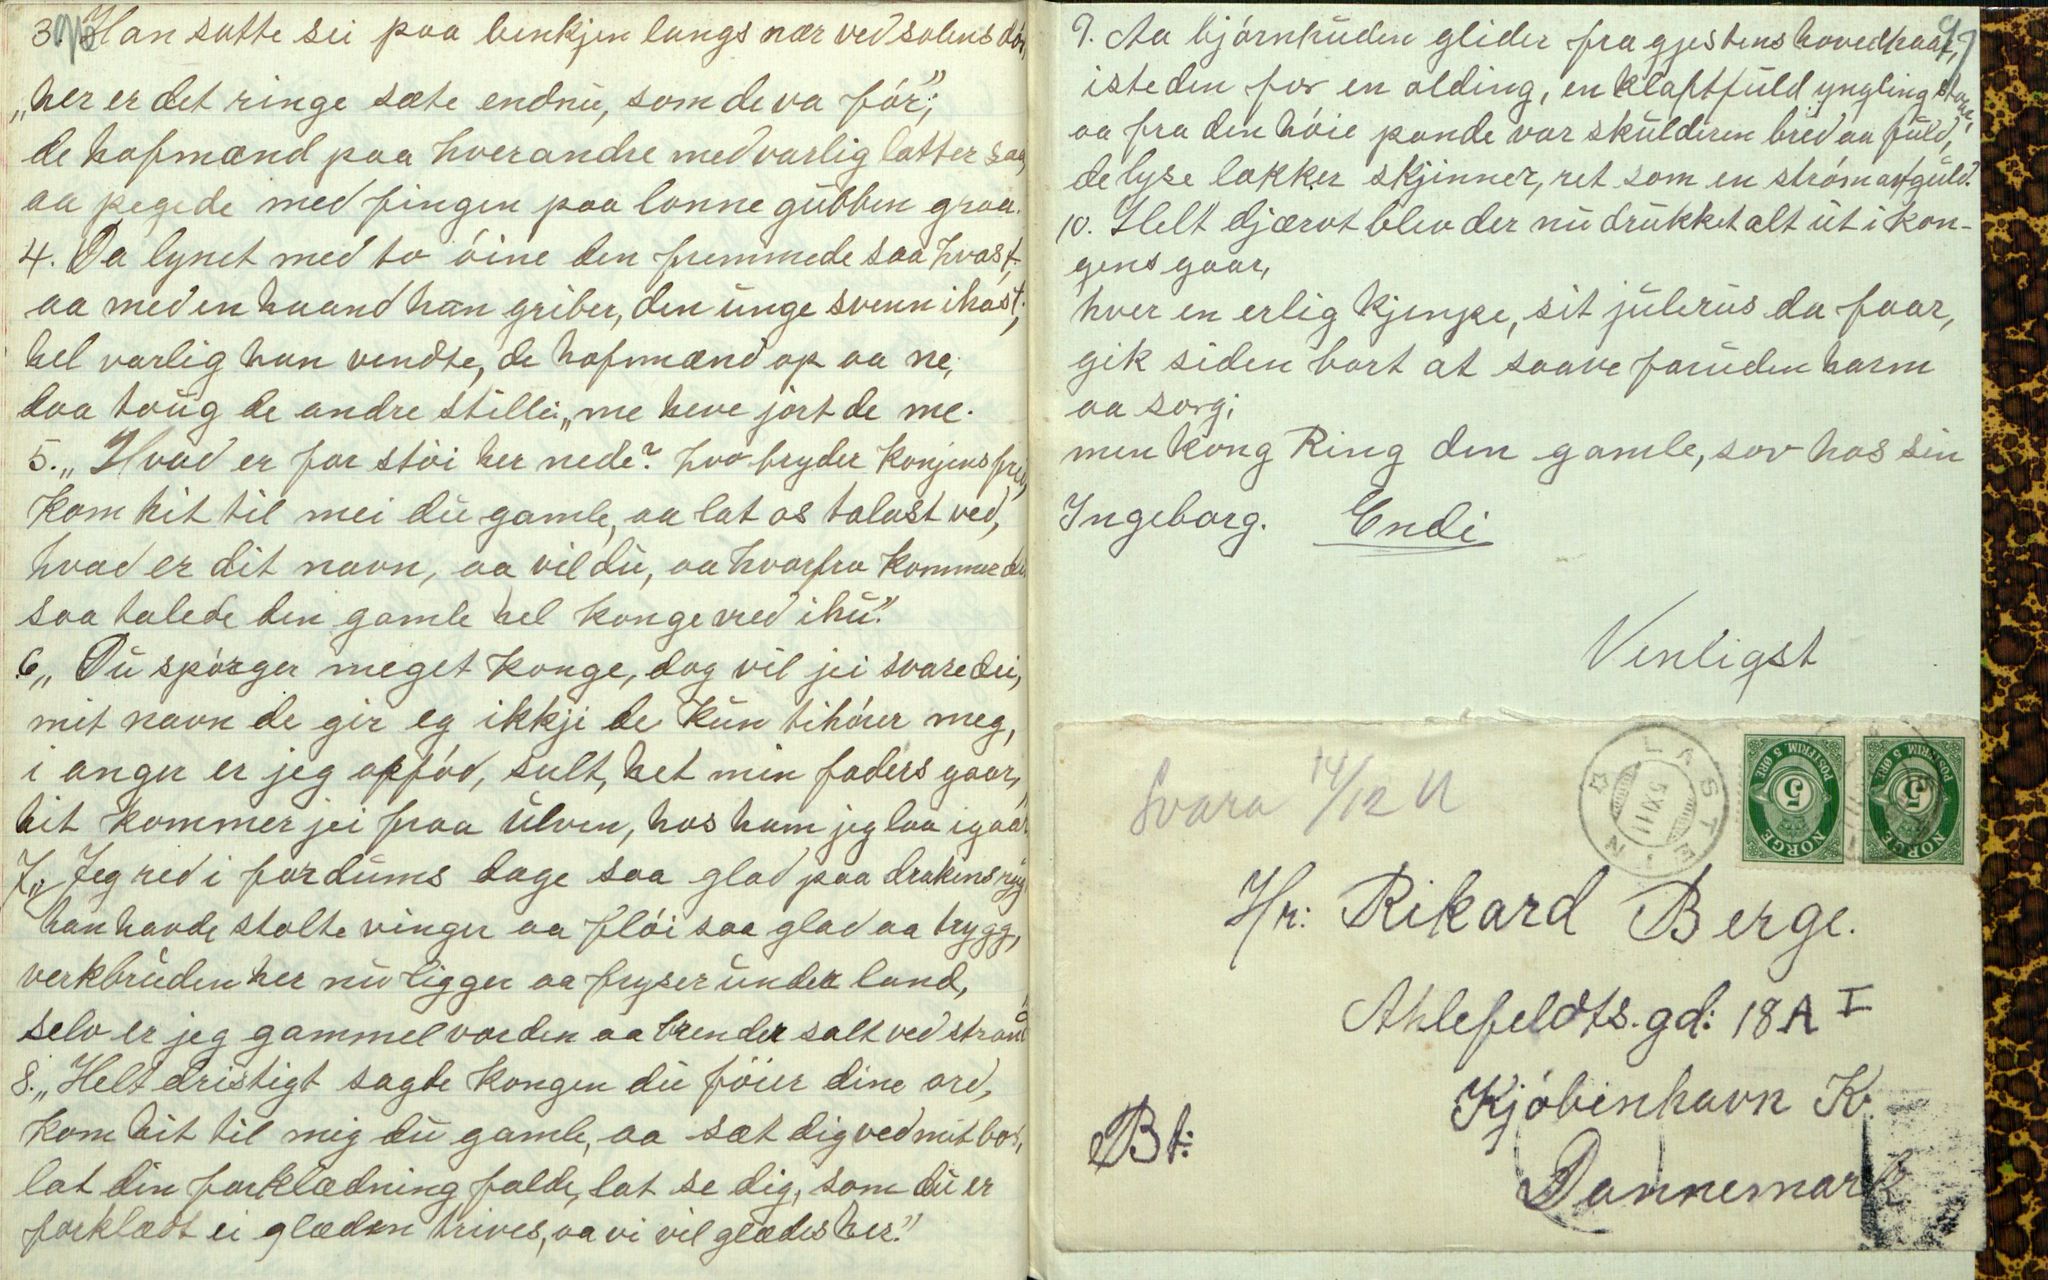 3. Han satte sei paa benkjen langs nær ved salens dør,
„her er det ringe sæte endnu, som de va før";
de hofmænd paa hverandre med varlig latter saa,
aa pegede med fingen paa lonne gubben graa.
4. Da lynet med to øine den fremmede saa hvast,
aa med en haand han griber, den unge svenn i hast;
hel varlig han vendte, de hofmænd op aa ne,
daa toug de andre stille: „me heve jort de me.
5. „Hvad er for støi her nede? hvo bryder konjens fred,
kom hit til mei du gamle, aa lat os talast ved,
hvad er dit navn, aa vil du, aa hvorfra kommer du
saa talede den gamle hel konge vred i hu."
6 „Du spørger meget konge, dog vil jei svare dei,
mit navn de gir eg ikkji de kun tihører meg,
i anger er jeg opfød, sult, het min faders gaar,
hit kommer jei fraa ulven, hos ham jeg laa igaar
7. „Jeg red i fordums dage saa glad paa drakens ryg
han havde stolte vinger aa fløi saa glad aa trygg,
verkbruden her nu ligger aa fryser under land,
selv er jeg gammel vorden aa brender salt ved strand
8. „Helt dristigt sagde kongen du føier dine ord,
kom hit til mig du gamle, aa sæt dig ved mit bord,
lat din forklædning falde, lat se dig, som du er
forklædt ei glæden trives, aa vi vil glædes her."
97
9. Aa bjørnhuden glider fra gjestens hovedhaar,
isteden for en olding, en klaftfuld yngling staar,
aa fra den høie pande var skulderen bred aa fuld,
de lyse lakker skjinner, ret som en strøm av guld.
10. Helt djærvt blev der nu drukket alt ut i kon-
gens gaar,
hver en erlig kjempe, sit julerus da faar,
gik siden bort at saave foruden harm
aa sorg;
men kong Ring den gamle, sov hos sin
Ingeborg. Endi
Venligst
Svara 14/12 11
LASTEIN
5 XI 11
POSTFRIM 5 ØRE
5
NORGE
POSTFRIM 5 ØRE
5
NORGE
Hr: Rikard Berge.
Ahlefeldts.gd: 18 A I
Kjøbenhavn K
Bt:
Dannemark